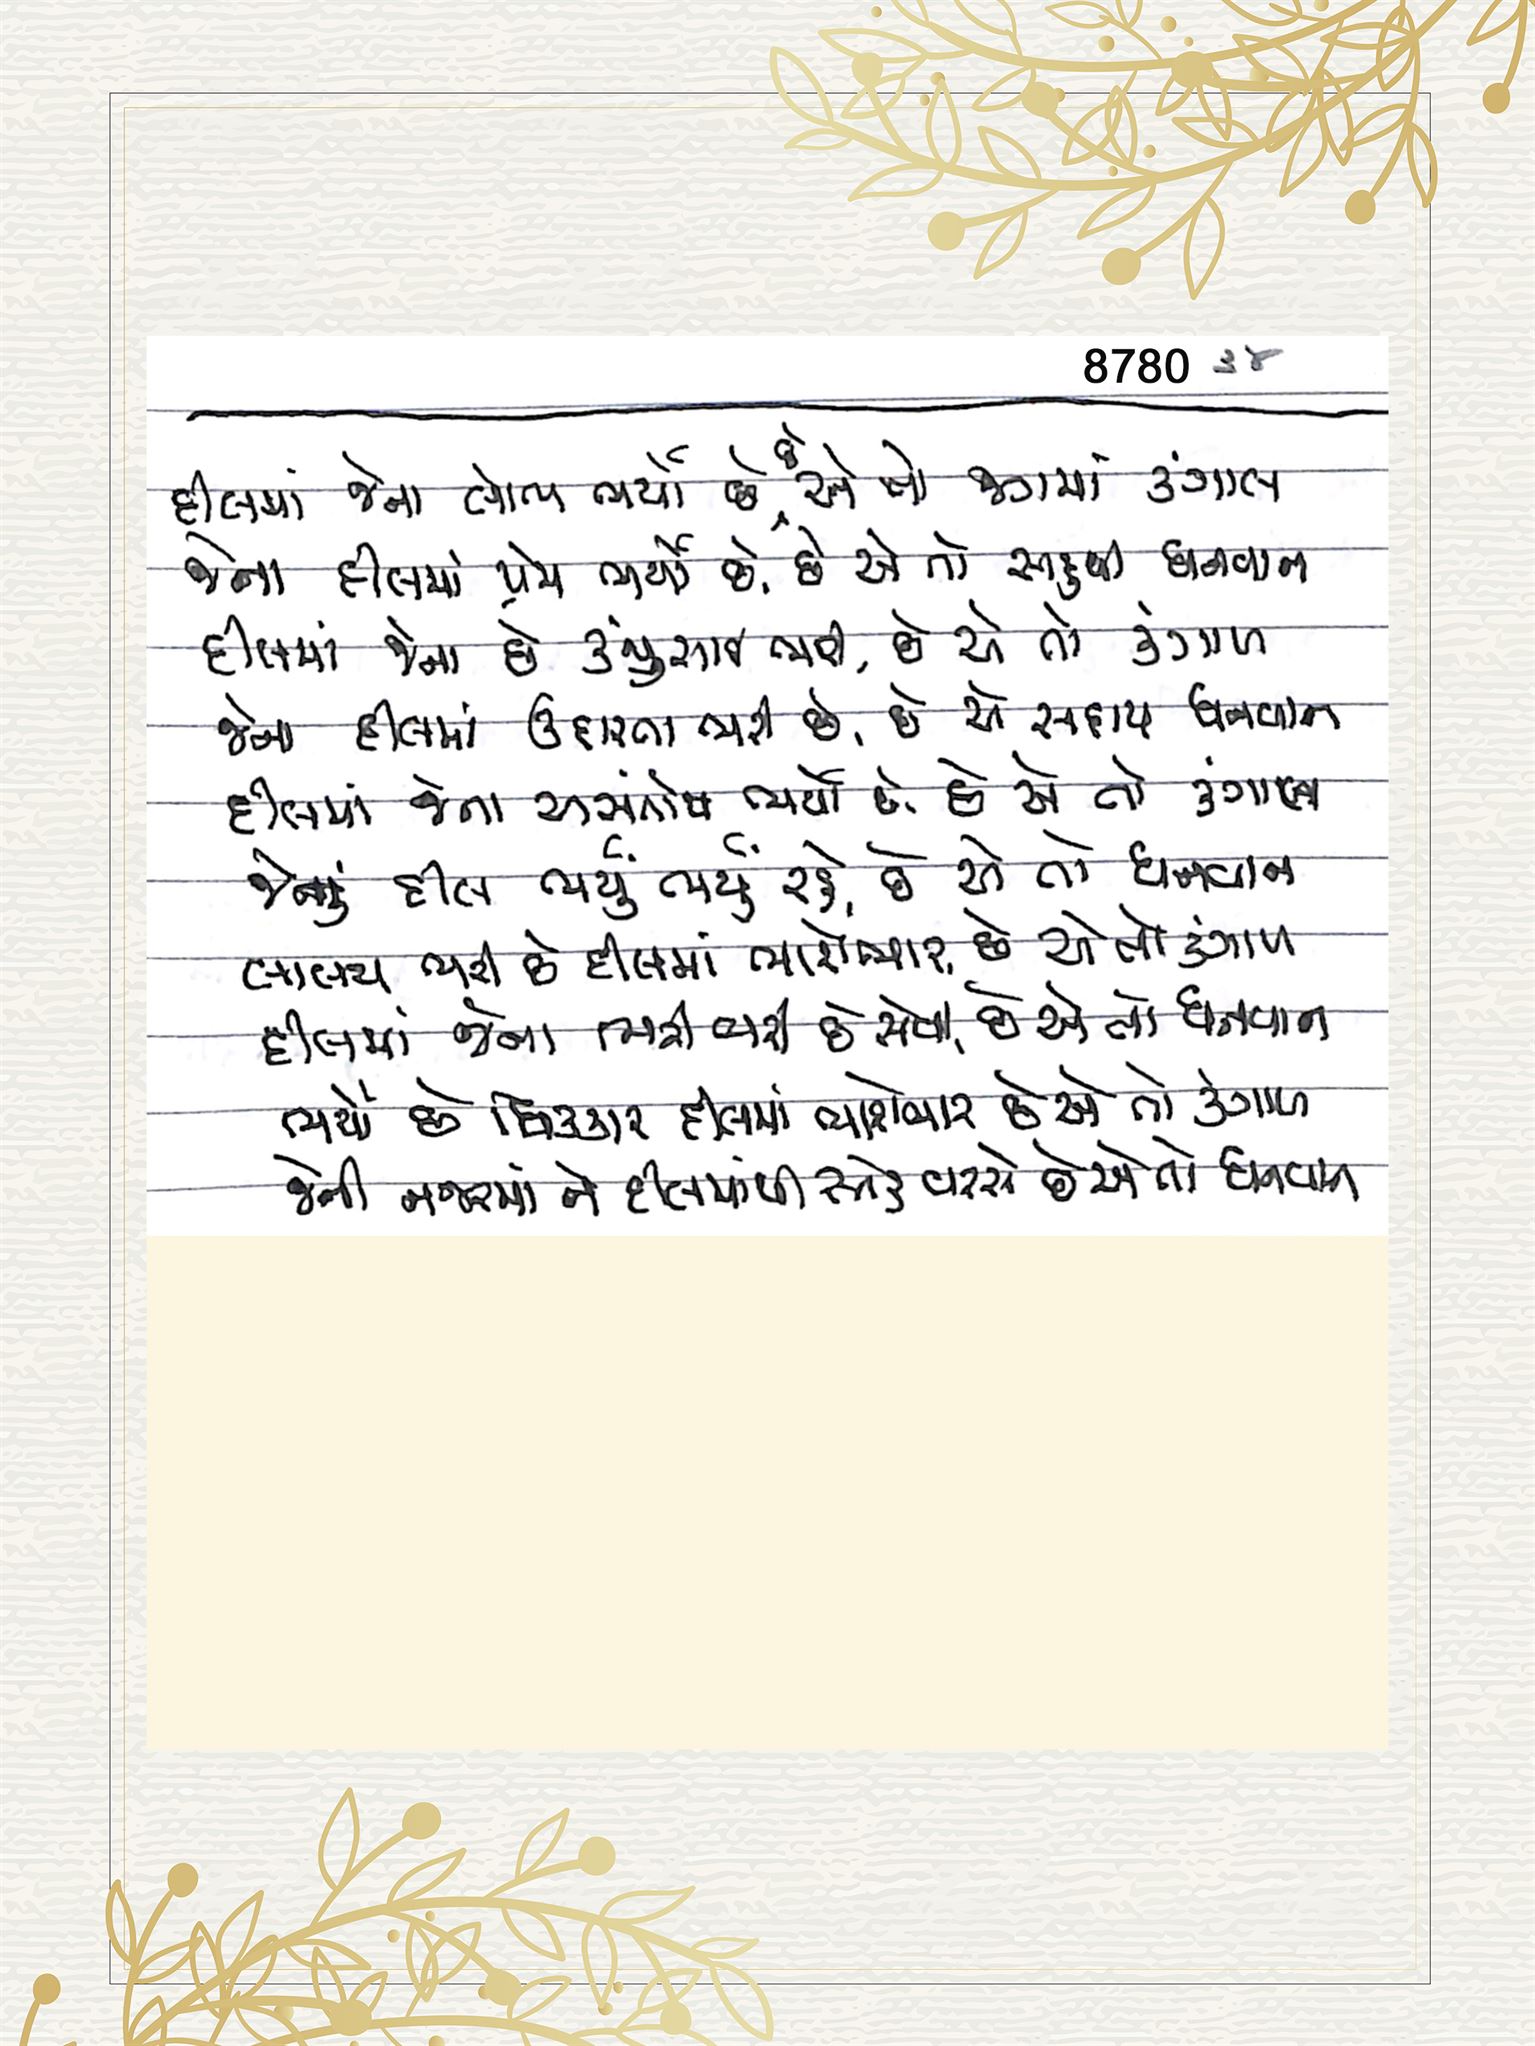 8780 ૩૪
દીલમાં જેના લોભ ભર્યો છે, છે એ તો જગમાં કંગાલ
જેના દીલમાં પ્રેમ ભર્યો છે, છે એ તો સહુથી ધનવાન
દીલમાં જેના છે કંજુસાઈ ભરી, છે એ તો કંગાળ
જેના દીલમાં ઉદારતા ભરી છે, છે એ સદાય ધનવાન
દીલમાં જેના અસંતોષ ભર્યો છે, છે એ તો કંગાળ
જેનું દીલ ભર્યું ભર્યું રહે, છે એ તો ધનવાન
લાલચ ભરી છે દીલમાં ભારોભાર, છે એ તો કંગાળ
દીલમાં જેના ભરી ભરી છે સેવા, છે એ તો ધનવાન
ભર્યો છે ધિક્કાર દીલમાં ભારોભાર છે એ તો કંગાળ
જેની નજરમાં ને દીલમાંથી સ્નેહ વરસે છે એ તો ધનવાન